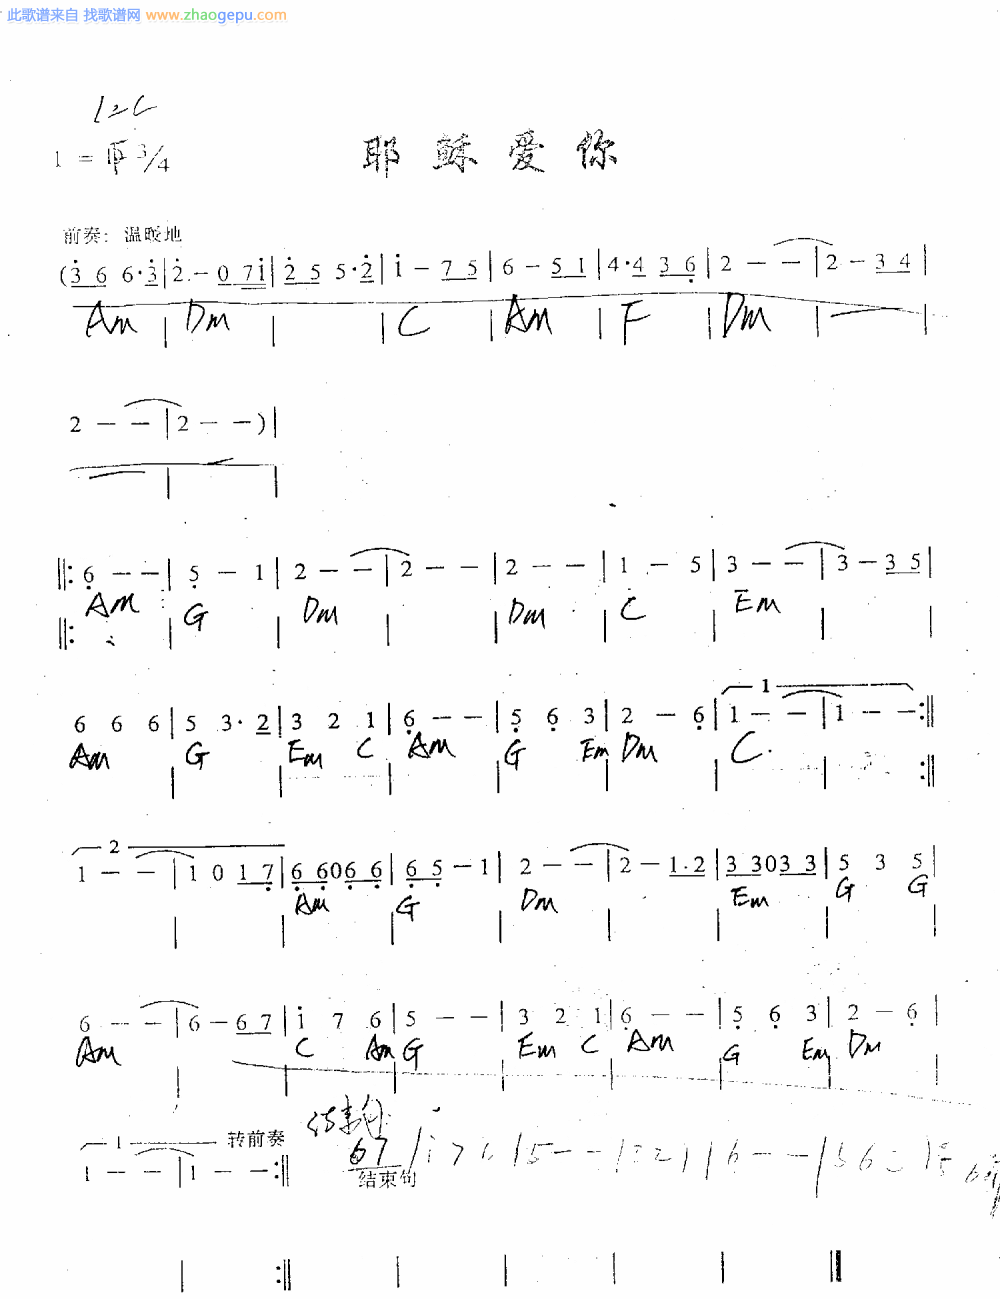 此歌谱来自 找歌谱网 www.zhaogepu.com
1=C
1 = 3/4
耶稣爱你
前奏: 温暖地
(3̇ 6 6·3̇|2̇ - 0 7i̇|2̇ 5 5·2̇|i̇ - 7 5|6 - 5 1|4·4 3 6̣|2 - -|2 - 3 4|
Am | Dm | | C | Am | F | Dm | |
2 - -|2 - -)|
||: 6̣ - -|5̣ - 1|2 - -|2 - -|2 - -|1 - 5|3 - -|3 - 3 5|
Am G Dm | | Dm | C | Em | |
6 6 6|5 3· 2|3 2 1|6̣ - -|5̣ 6̣ 3|2 - 6̣|1 - -|1 - - :||
1
Am | G | Em C | Am | G Em | Dm | C
2
1 - -|1 0 1 7̣|6̣ 6̣06̣ 6̣|6̣ 5̣ - 1|2 - -|2 - 1·2|3 303 3|5 3 5|
Am G Dm Em G G
6 - -|6 - 6 7|i̇ 7 6|5 - -|3 2 1|6̣ - -|5̣ 6̣ 3|2 - 6̣|
Am C Am G Em C Am G Em Dm
1 转前奏 结束句
1 - -|1 - - :|| 67
结束句